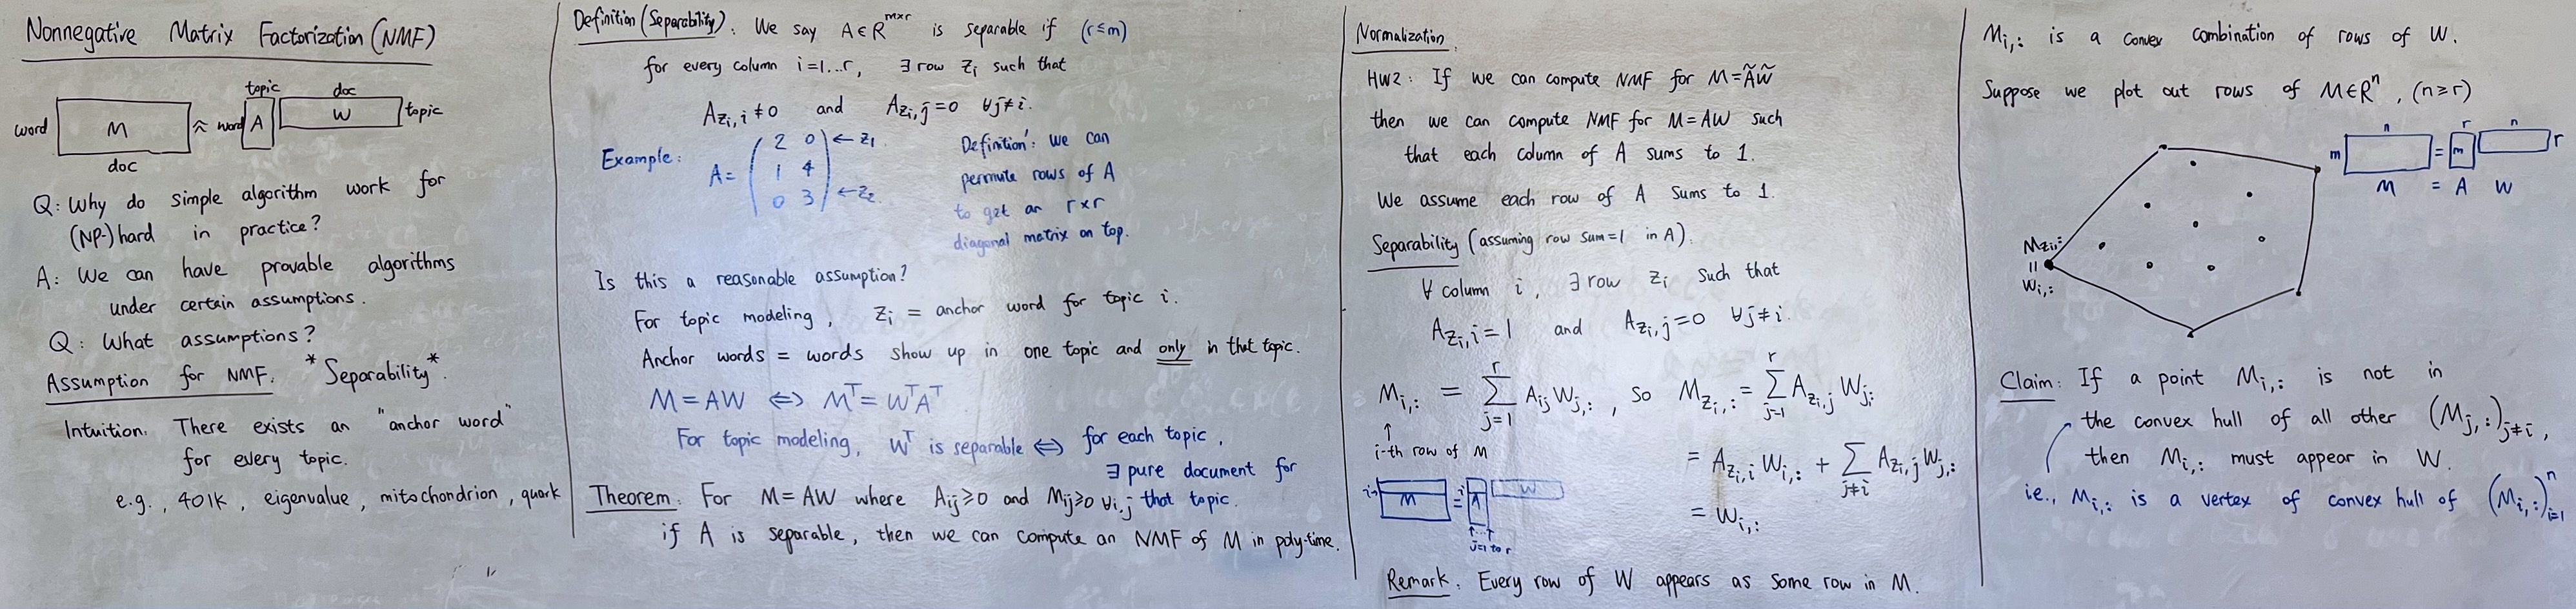 Nonnegative Matrix Factorization (NMF)
topic doc
word M ≈ word A W topic
doc
Q: Why do simple algorithm work for
(NP-)hard in practice?
A: We can have provable algorithms
under certain assumptions.
Q: What assumptions?
Assumption for NMF. *Separability*.
Intuition. There exists an "anchor word"
for every topic.
e.g., 401k, eigenvalue, mitochondrion, quark
Definition (Separability). We say A ∈ R^{m×r} is separable if (r≤m)
for every column i=1...r, ∃ row z_i such that
A_{z_i,i} ≠ 0 and A_{z_i,j} = 0 ∀j≠i.
Example:
A = ( 2 0 ) ← z_1
1 4
0 3 ← z_2
Definition': we can
permute rows of A
to get an r×r
diagonal matrix on top.
Is this a reasonable assumption?
For topic modeling, z_i = anchor word for topic i.
Anchor words = words show up in one topic and only in that topic.
M = AW ⟺ M^T = W^T A^T
For topic modeling, W^T is separable ⟺ for each topic,
∃ pure document for
that topic.
Theorem. For M = AW where A_{ij} ≥ 0 and M_{ij} ≥ 0 ∀i,j
if A is separable, then we can compute an NMF of M in poly-time.
Normalization.
HW2: If we can compute NMF for M = ÃW̃
then we can compute NMF for M = AW such
that each column of A sums to 1.
We assume each row of A sums to 1.
Separability (assuming row sum = 1 in A).
∀ column i, ∃ row z_i such that
A_{z_i,i} = 1 and A_{z_i,j} = 0 ∀j≠i.
M_{i,:} = Σ_{j=1}^{r} A_{ij} W_{j,:}, so M_{z_i,:} = Σ_{j=1}^{r} A_{z_i,j} W_{j:}
↑
i-th row of M
= A_{z_i,i} W_{i,:} + Σ_{j≠i} A_{z_i,j} W_{j,:}
= W_{i,:}
i→ M = i A W
↑...↑
j=1 to r
Remark. Every row of W appears as some row in M.
M_{i,:} is a convex combination of rows of W.
Suppose we plot out rows of M ∈ R^n, (n ≥ r)
n r n
m = m r
M = A W
M_{z_i,:}
=
W_{i,:}
Claim: If a point M_{i,:} is not in
the convex hull of all other (M_{j,:})_{j≠i},
then M_{i,:} must appear in W.
ie., M_{i,:} is a vertex of convex hull of (M_{i,:})_{i=1}^n